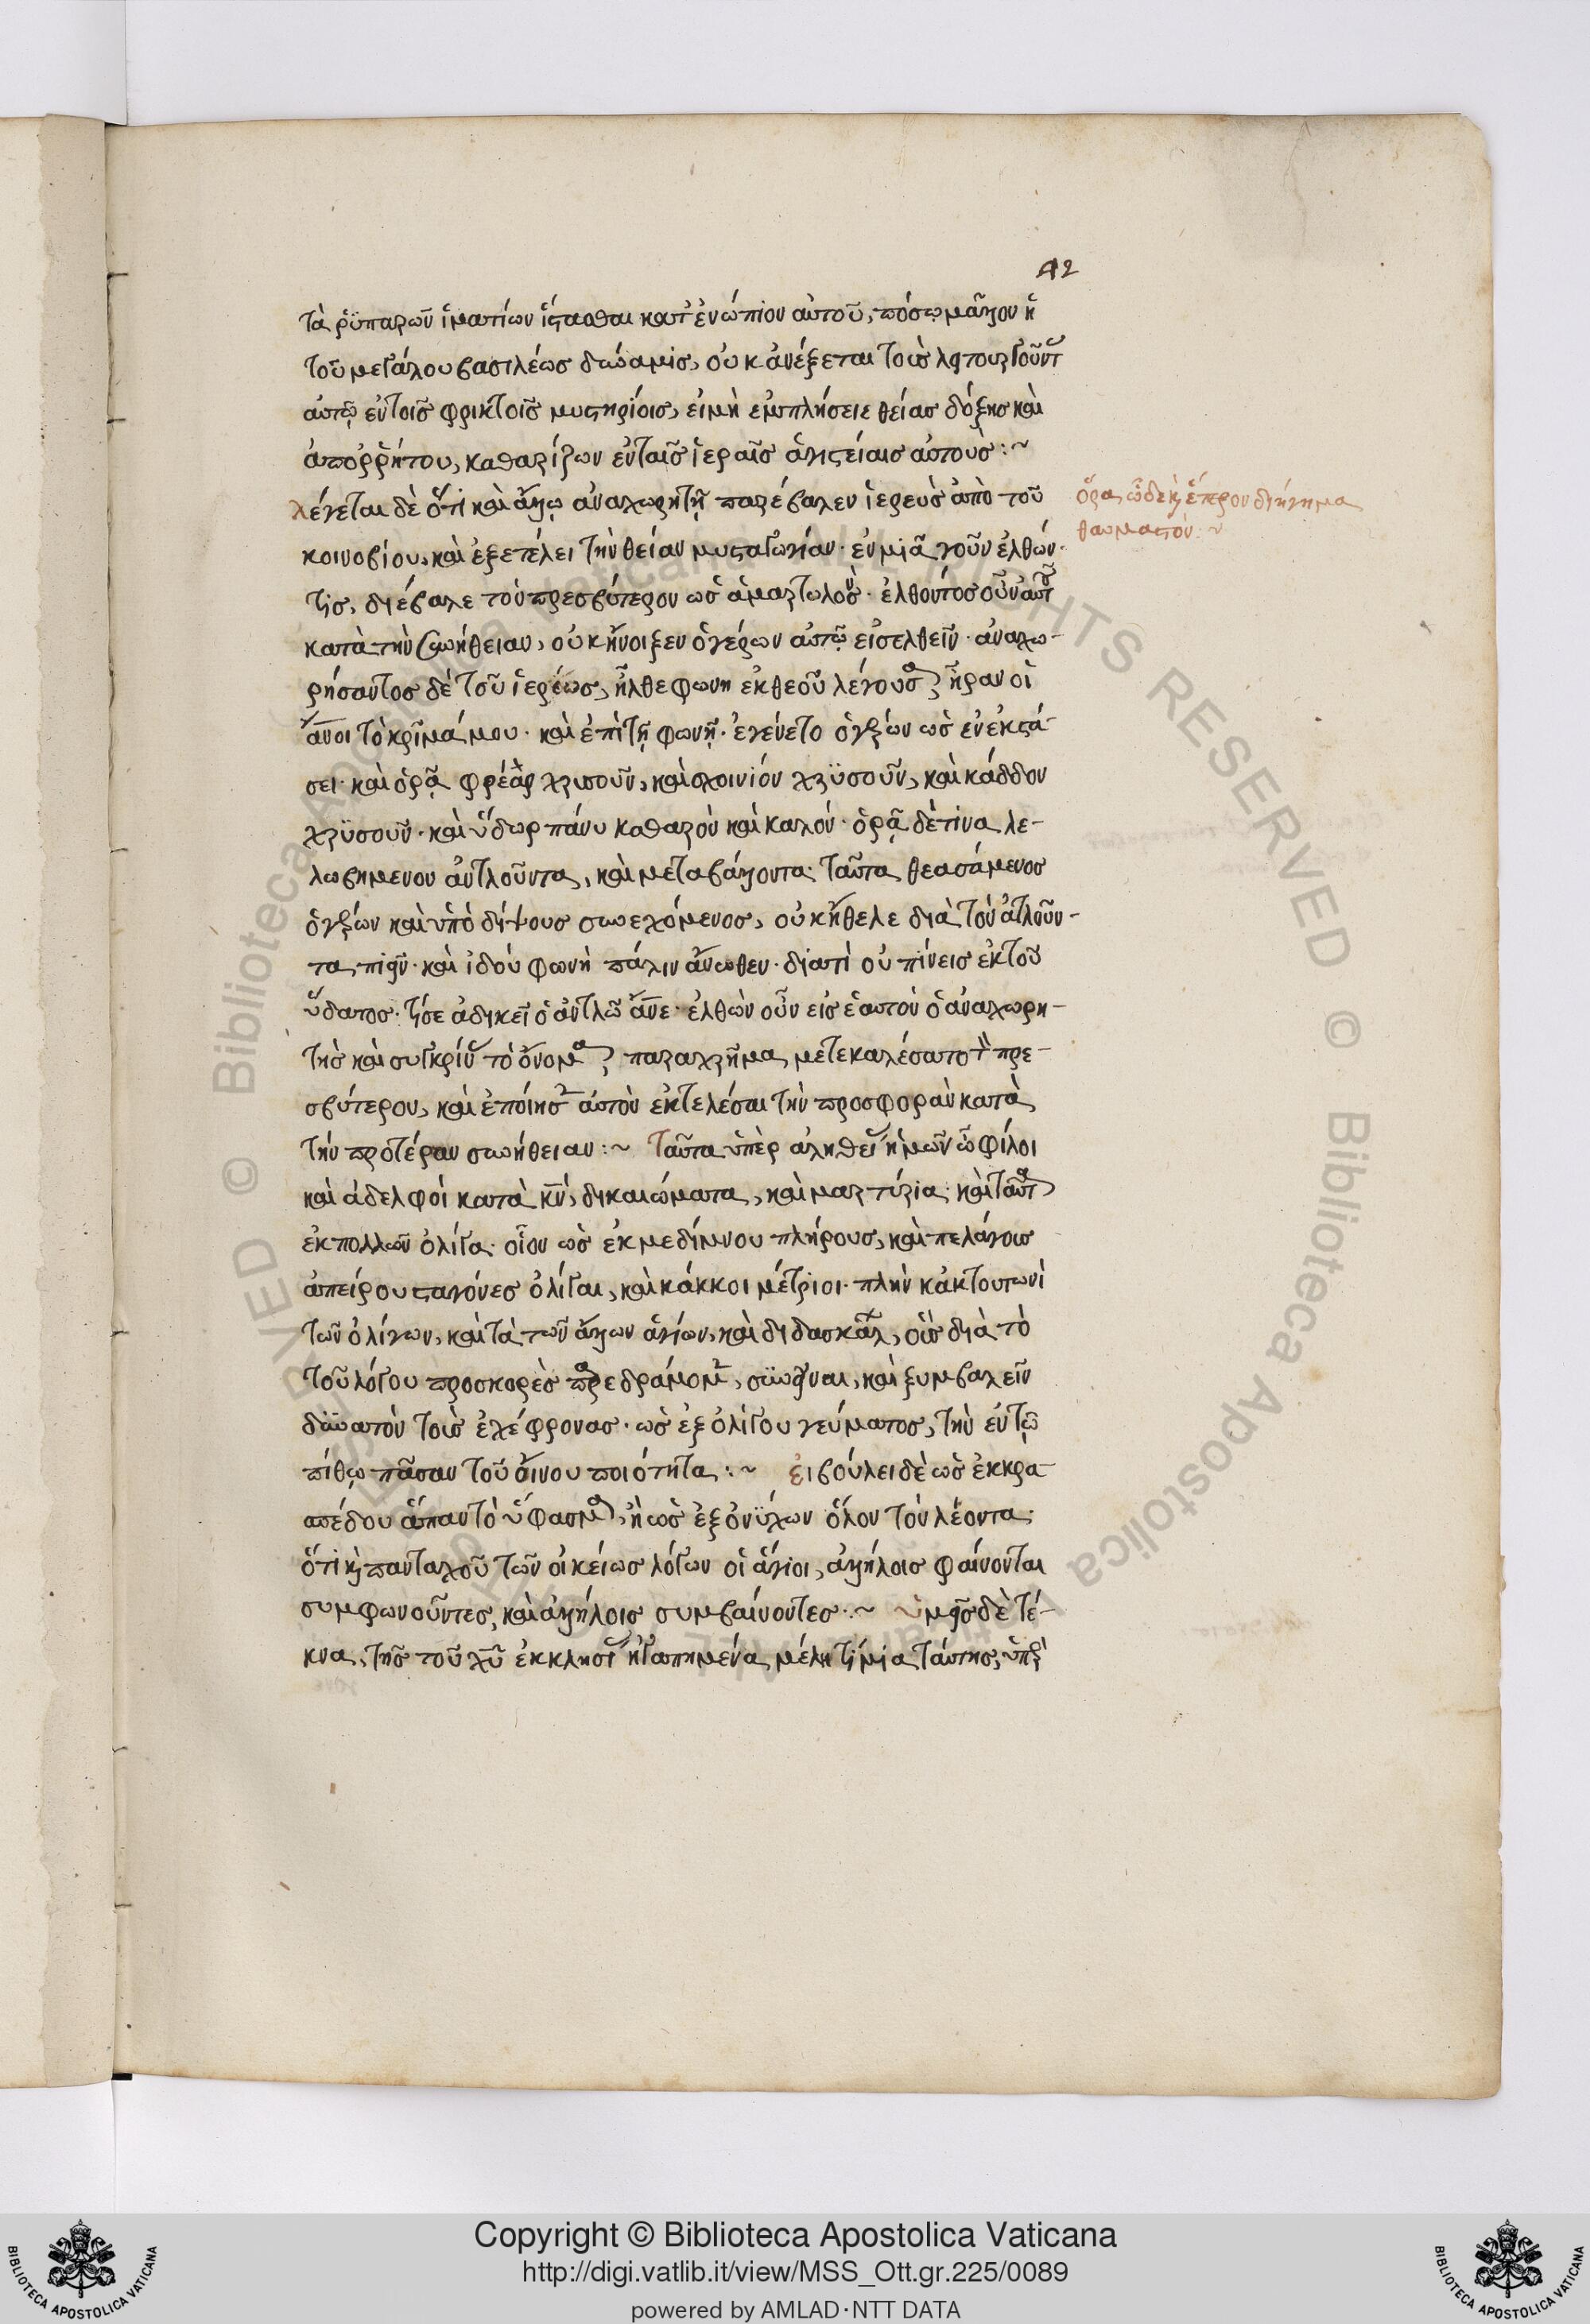 42
τὰ ῥϋπαρῶν ἱματίων ἵστασθαι κατ' ἐνώπιον αὐτοῦ, πόσω μᾶλλον ἡ
τοῦ μεγάλου βασιλέως δύναμις, οὐκ ἀνέξεται τοὺς λειτουργοῦντ
αὐτῷ ἐν τοῖς φρικτοῖς μυστηρίοις, εἰμὴ ἐμπλήσειε θείας δόξης καὶ
ἀπορρήτου, καθαρίζων ἐν ταῖς ἱεραῖς ἁγιστείαις αὐτούς :~
λέγεται δὲ ὅτι καὶ ἄλλῳ ἀναχωρητῇ παρέβαλεν ἱερεὺς ἀπὸ τοῦ
ὅρα ὧδε καὶ ἕτερον διήγημα
θαυμαστόν :~
κοινοβίου, καὶ ἐξετέλει τὴν θείαν μυσταγωγίαν· ἐν μιᾷ γοῦν ἐλθών
τις, διέβαλε τὸν πρεσβύτερον ὡς ἁμαρτωλὸν· ἐλθόντος οὖν αὐτοῦ
κατὰ τὴν συνήθειαν, οὐκ ἤνοιξεν ὁ γέρων αὐτῷ εἰσελθεῖν· ἀναχω-
ρήσαντος δὲ τοῦ ἱερέως, ἦλθε φωνη ἐκ θεοῦ λέγουσα, ἦραν οἱ
ἄνοι τὸ κρῖμά μου· καὶ ἐπὶ τῇ φωνῇ· ἐγένετο ὁ γέρων ὡς ἐν ἐκστά-
σει· καὶ ὁρᾷ φρέαρ χρυσοῦν, καὶ σχοινίον χρϋσοῦν, καὶ κάδδον
χρϋσοῦν· καὶ ὕδωρ πάνυ καθαρὸν καὶ καλόν· ὁρᾷ δὲ τινα λε-
λωβημενον ἀντλοῦντα, καὶ μεταβάλλοντα· ταῦτα θεασάμενος
ὁ γέρων καὶ ὑπὸ δίψους συνεχόμενος, οὐκ ἤθελε διὰ τὸν ἀντλοῦν-
τα πιεῖν· καὶ ἰδοὺ φωνὴ πάλιν ἄνωθεν· διατὶ οὐ πίνεις ἐκ τοῦ
ὕδατος· τί σε ἀδικεῖ ὁ ἀντλῶν ἄνε· ἐλθὼν οὖν εἰς ἑαυτὸν ὁ ἀναχωρη-
τὴς καὶ συγκρίν τὸ ὄνομα, παραχρῆμα μετεκαλέσατο τὸν πρε-
σβύτερον, καὶ ἐποίησεν αὐτὸν ἐκτελέσαι τὴν προσφορὰν κατὰ
τὴν προτέραν συνήθειαν :~ ταῦτα ὑπὲρ ἀληθεί ἡμῶν ὦ φίλοι
καὶ ἀδελφοὶ κατὰ κν, δικαιώματα, καὶ μαρτύρια· καὶ ταῦτα
ἐκ πολλῶν ὀλίγα· οἷον ὡς ἐκ μεδίμνου πλήρους, καὶ πελάγους
ἀπείρου σταγόνες ὀλίγαι, καὶ κόκκοι μέτριοι· πλὴν κἀκ τουτωνὶ
τῶν ὀλίγων, καὶ τὰ τῶν ἄλλων ἁγίων, καὶ διδασκάλ, οὓς διὰ τὸ
τοῦ λόγου προσκορὲς παρεδράμομεν, συνιέναι, καὶ ξυμβαλεῖν
δϋνατὸν τοὺς ἐχέφρονας· ὡς ἐξ ὀλίγου γεύματος, τὴν ἐν τῷ
πίθῳ πᾶσαν τοῦ οἴνου ποιότητα :~ εἰ βούλει δὲ ὡς ἐκ κρα-
σπέδου ἅπαν τὸ ὕφασμα, ἢ ὡς ἐξ ὀνύχων ὅλον τὸν λέοντα·
ὅτι καὶ πανταχοῦ τῶν οἰκείως λόγων οἱ ἅγιοι, ἀλλήλοις φαίνονται
συμφωνοῦντες, καὶ ἀλλήλοις συμβαίνοντες :~ ὑμεῖς δὲ τέ-
κνα, τῆς τοῦ χυ ἐκκλησί ἠγαπημένα μέλη τίμια ταύτης, ὑπὲρ
Copyright © Biblioteca Apostolica Vaticana
http://digi.vatlib.it/view/MSS_Ott.gr.225/0089
powered by AMLAD·NTT DATA